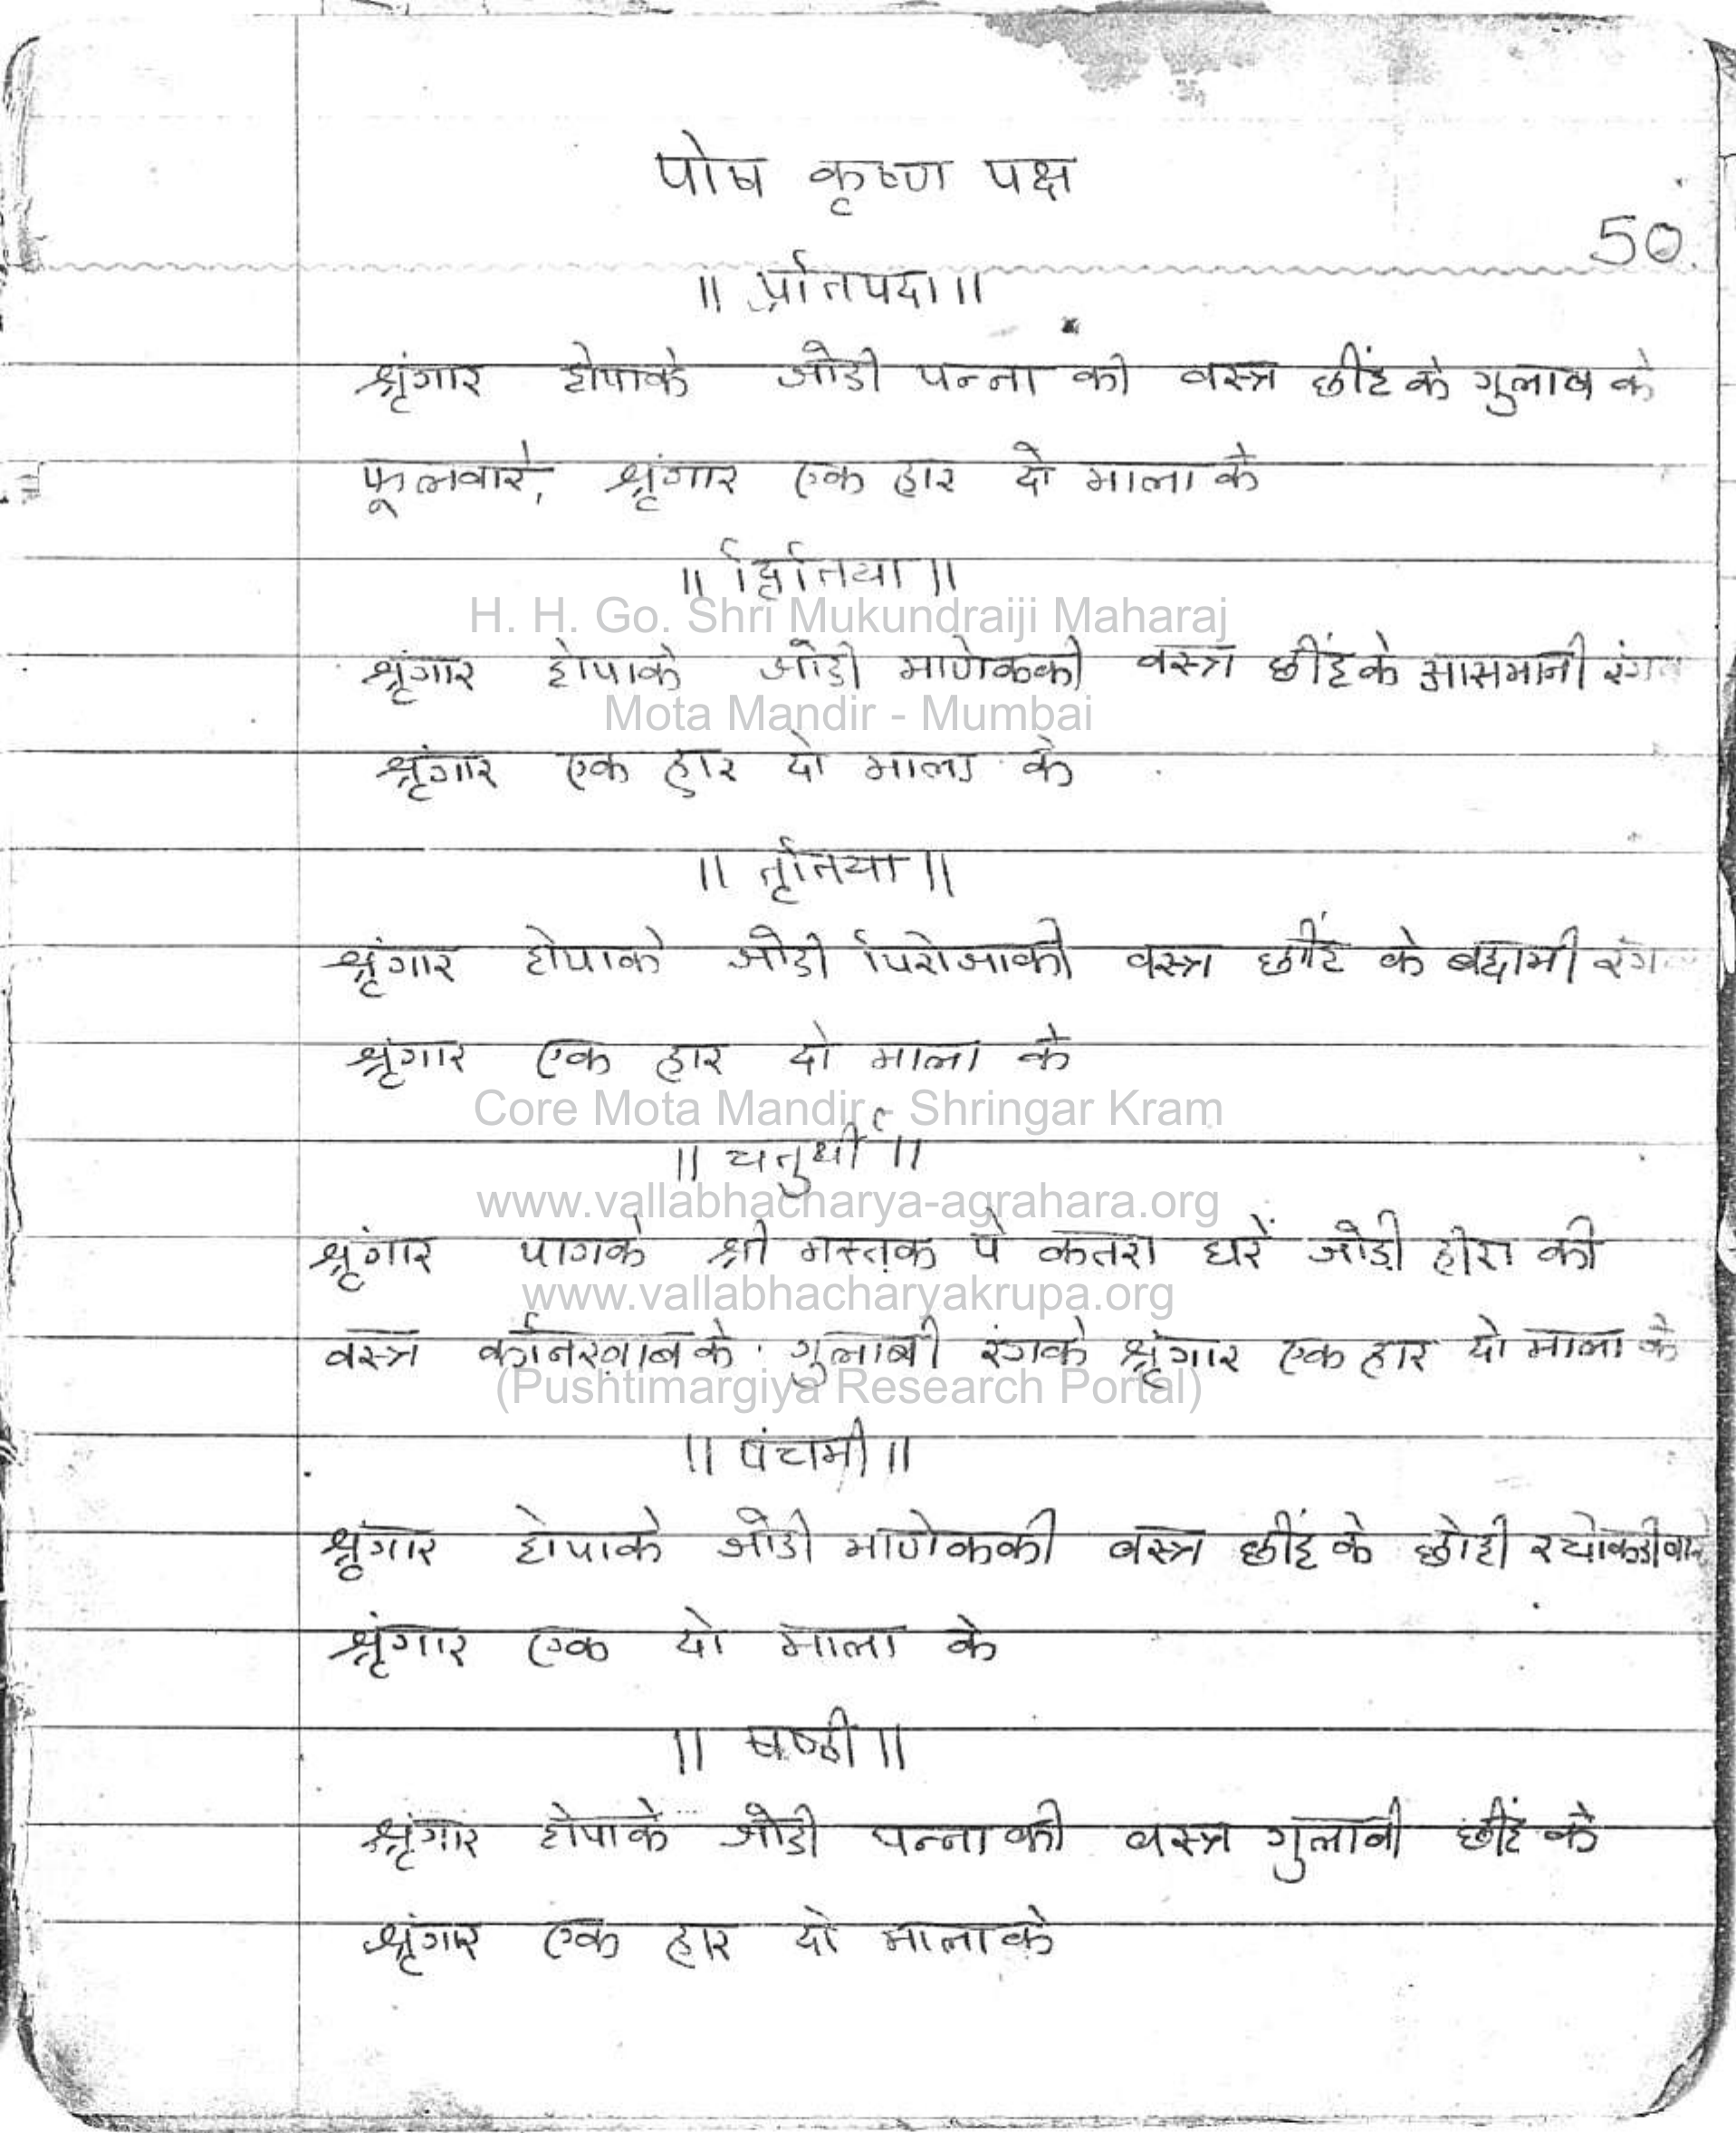 पोष कृष्ण पक्ष
50
॥ प्रतिपदा ॥
श्रृंगार टोपाके जोडी पन्ना की वस्त्र छींट के गुलाब के
फूलवारे, श्रृंगार एक हार दो माला के
॥ द्वितिया ॥
H. H. Go. Shri Mukundraiji Maharaj
श्रृंगार टोपाके जोडी माणेककी वस्त्र छींट के आसमानी रंग
Mota Mandir - Mumbai
श्रृंगार एक हार दो माला के
॥ तृतिया ॥
श्रृंगार टोपाके जोडी पिरोजाकी वस्त्र छींट के बदामी रंग
श्रृंगार एक हार दो माला के
Core Mota Mandir - Shringar Kram
॥ चतुर्थी ॥
www.vallabhacharya-agrahara.org
श्रृंगार पागके श्री मस्तक पे कतरा धरें जोडी हीरा की
www.vallabhacharyakrupa.org
वस्त्र किनखाब के गुलाबी रंगके श्रृंगार एक हार दो माला के
(Pushtimargiya Research Portal)
॥ पंचमी ॥
श्रृंगार टोपाके जोडी माणेककी वस्त्र छींट के छोटी
श्रृंगार एक दो माला के
॥ षष्ठी ॥
श्रृंगार टोपाके जोडी पन्ना की वस्त्र गुलाबी छींट के
श्रृंगार एक हार दो माला के